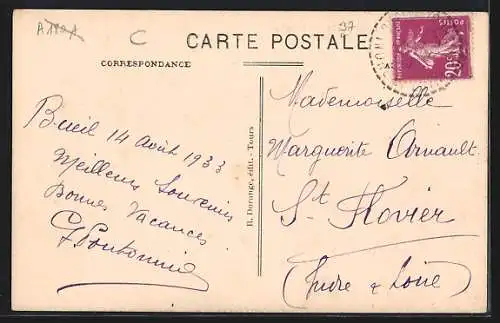 A 190
37
C
CARTE POSTALE
POSTES
20c
CORRESPONDANCE
Bueil 14 Août 1933
Meilleurs Souvenirs
Bonnes Vacances
R. Durange, édit. - Tours
Mademoiselle
Marguerite Arnault
St Flovier
(Indre & Loire)